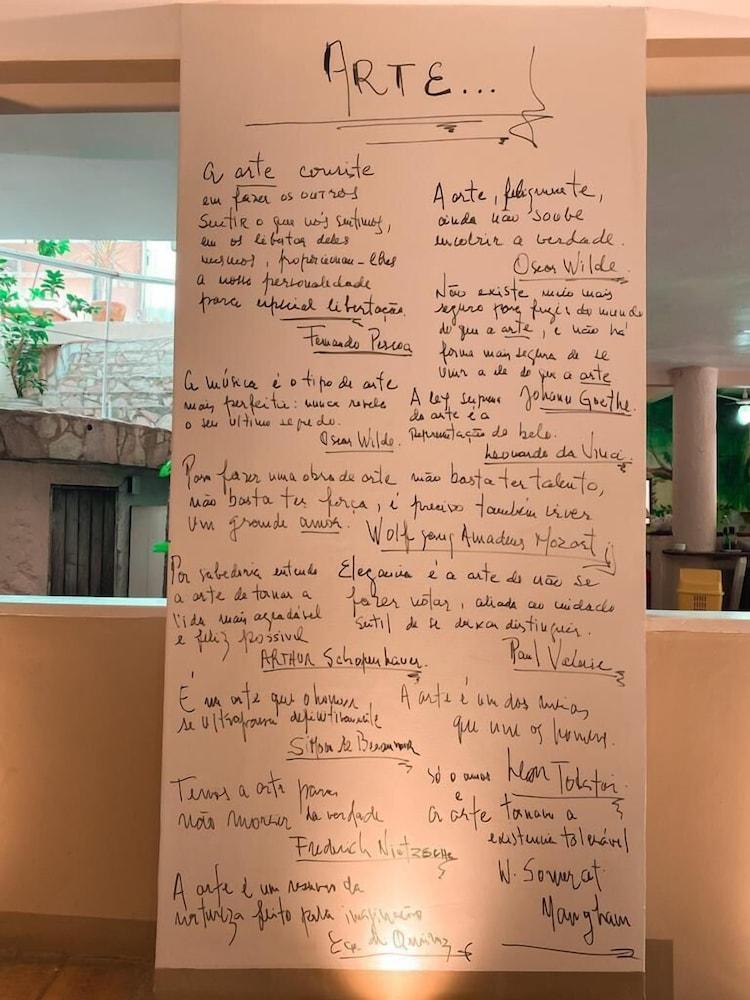 ARTE...
A arte consiste
em fazer os outros
sentir o que nós sentimos,
em os libertar deles
mesmos, proporcionan-lhes
a nossa personalidade
para especial libertação.
Fernando Pessoa
A arte, felizmente,
ainda não soube
encobrir a verdade.
Oscar Wilde.
Não existe meio mais
seguro para fugir do mundo
do que a arte, e não há
forma mais segura de se
unir a ele do que a arte
Johann Goethe.
A música é o tipo de arte
mais perfeita: nunca revela
o seu último segredo.
Oscar Wilde.
A ley suprema
da arte é a
Representação do belo.
Leonardo da Vinci.
Para fazer uma obra de arte não basta ter talento,
não basta ter força, é preciso também viver
um grande amor. Wolfgang Amadeus Mozart
Por sabedoria entendo
a arte de tornar a
vida mais agradável
e feliz possível
ARTHUR Schopenhauer.
Elegancia é a arte de não se
fazer notar, aliada ao cuidado
sutil de se deixar distinguir.
Paul Valerie
É na arte que o homem
se ultrapassa definitivamente
Simone de Beauvoir
A arte é um dos meios
que une os homens.
Leon Tolstoi.
Temos a arte para
não morrer da verdade
Frederich Nietzsche
Só o amor
e
a arte tornam a
existencia tolerável
W. Somerset
Maugham
A arte é um resumo da
natureza feito pela imaginação
Eça de Queiroz